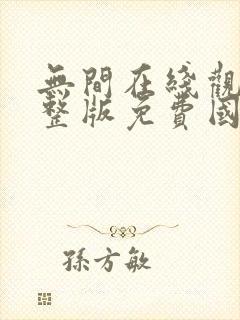 無間在綫觀
整版免費國
孫方敏